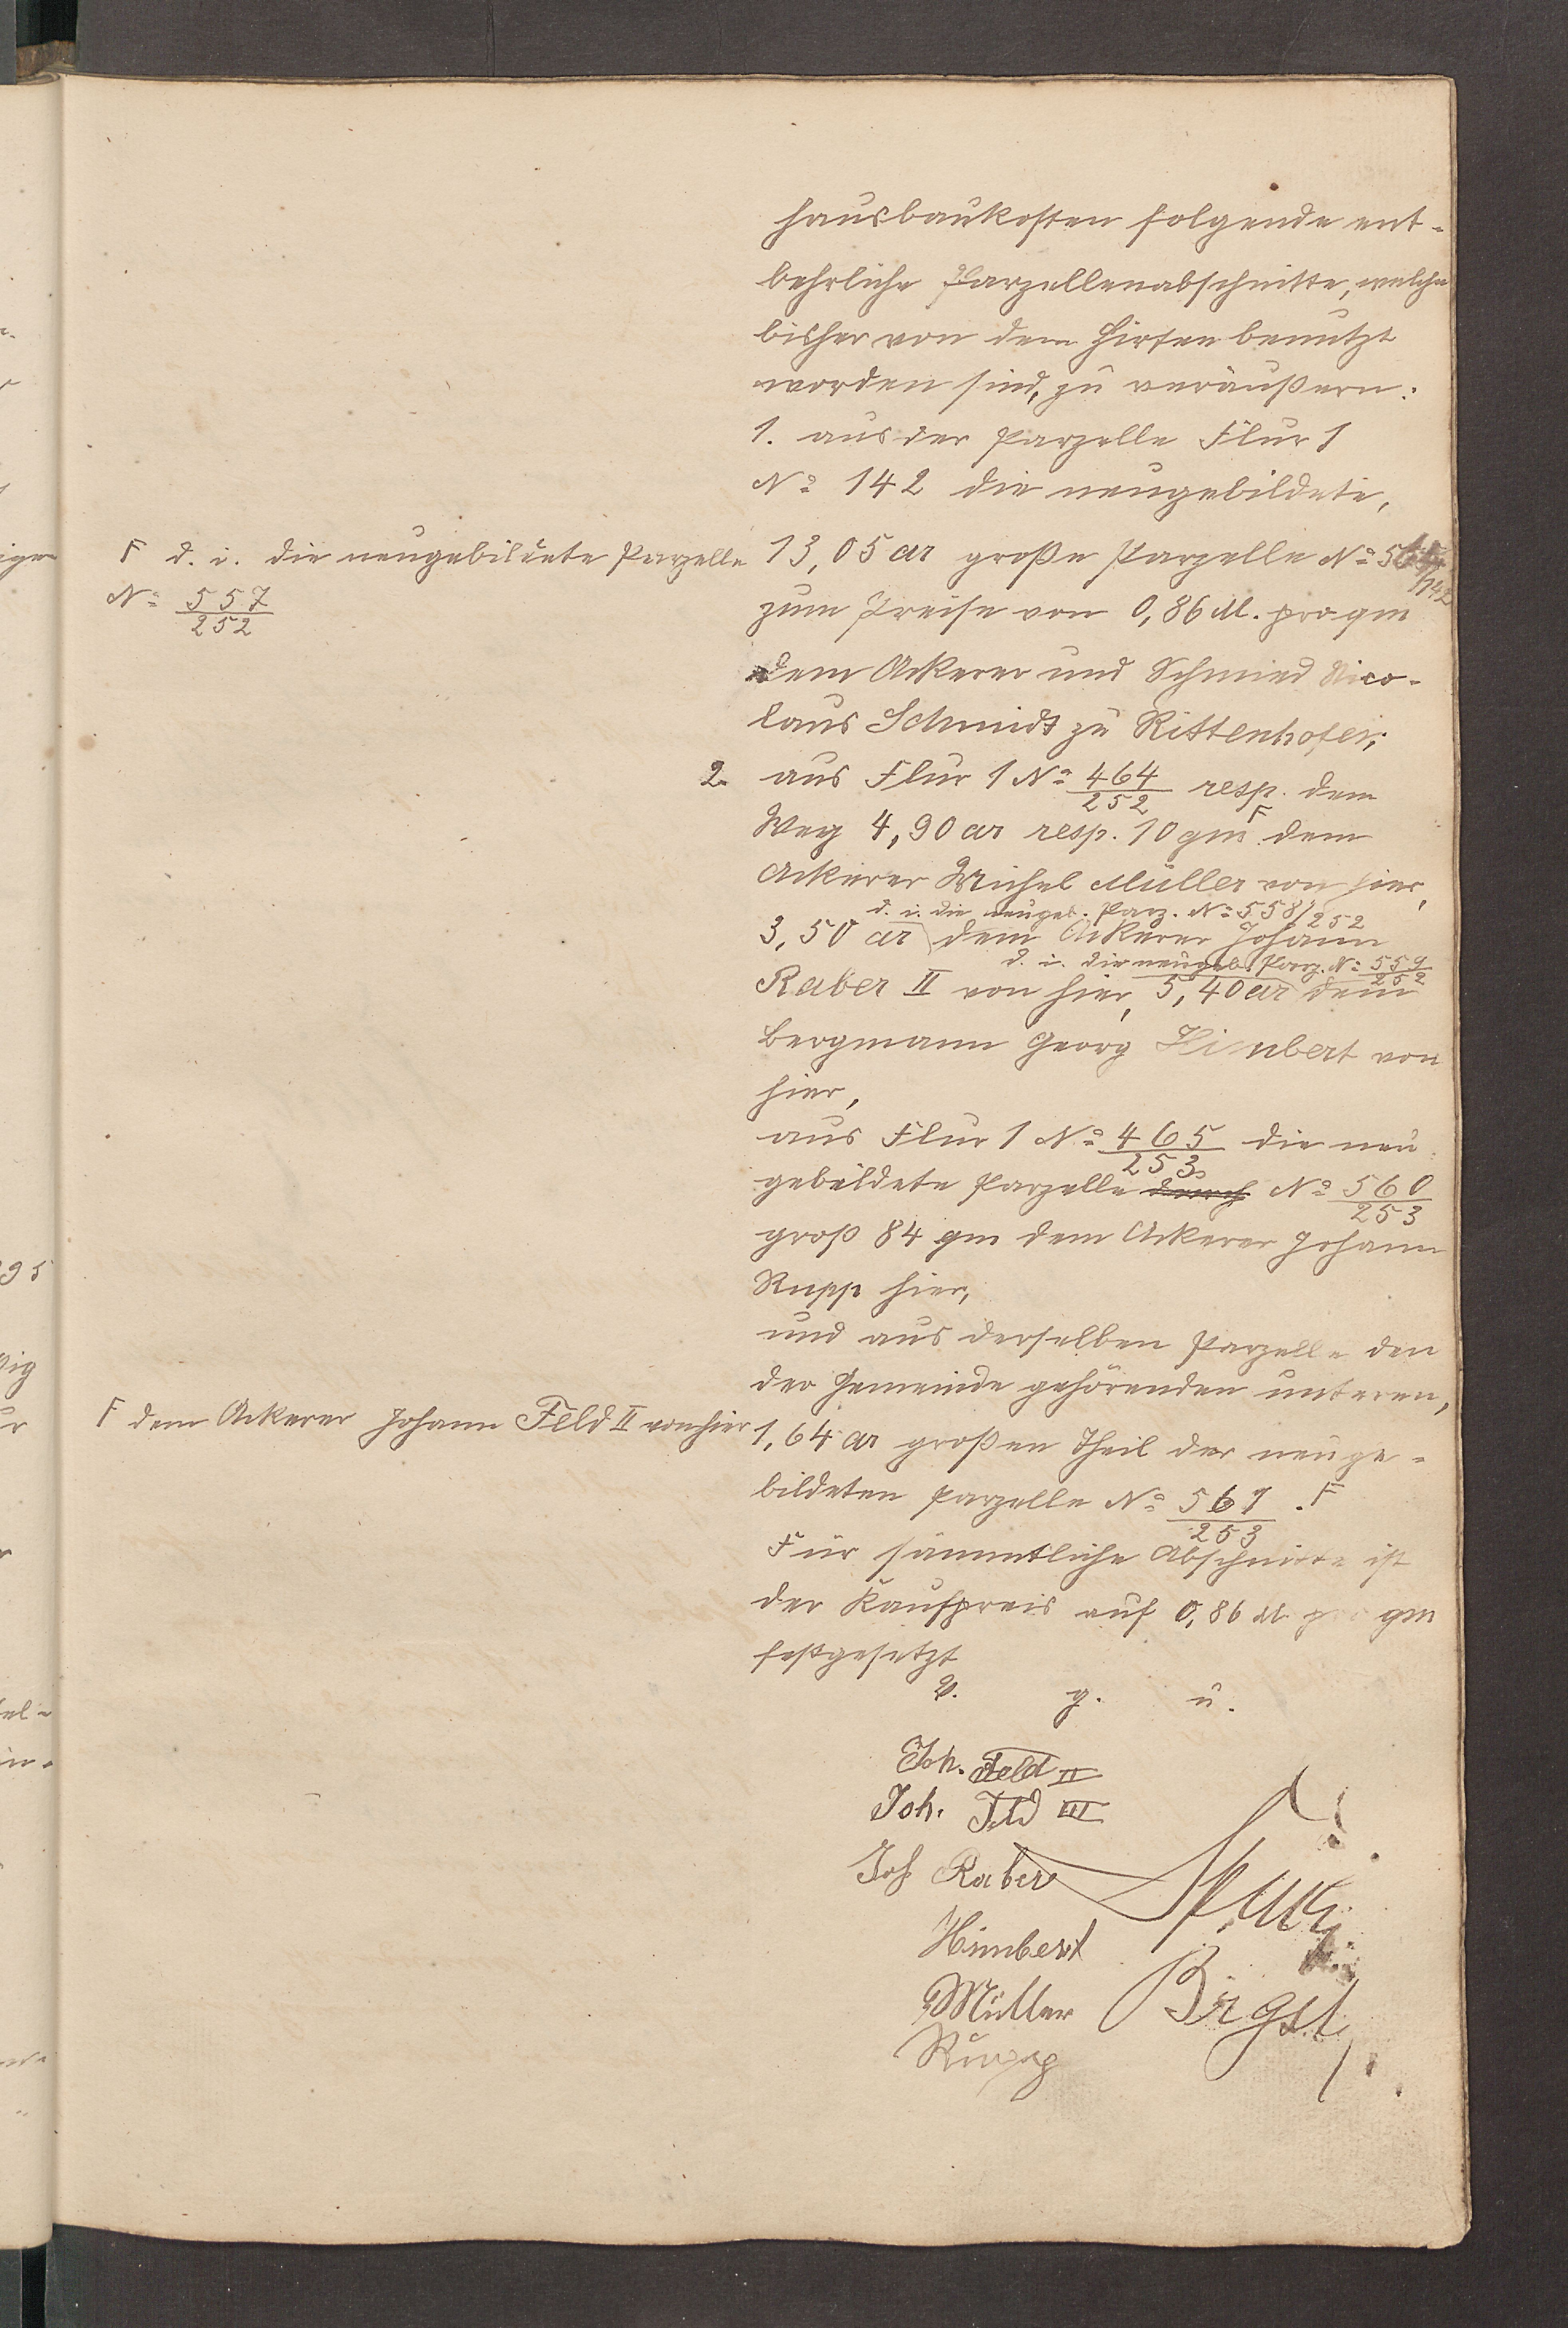 hausbaukosten folgende ent-
behrliche Parzellenabschnitte, welche
bisher von dem Hirten benutzt
worden sind, zu veräußern:
1. aus der Parzelle Flur 1
No 142 die neugebildete,
13,05 ar große Parzelle No /142
F d. i. die neugebildete Parzelle
No 557/252
zum Preise von 0,86 M. pro qm
dem Ackerer und Schmied Nico-
laus Schmidt zu Rittenhofen;
2. aus Flur 1 No 464/252 resp. dem
Weg 4,90 ar resp. 10 qm F dem
Ackerer Michel Müller von hier,
d. i. die neugeb. Parz. No 558/252
3,50 ar dem Ackerer Johann
d. i. die neugeb. Parz. No 559/252
Raber II von hier, 5,40 ar dem
Bergmann Georg Himbert von
hier,
aus Flur 1 No 465/253 die neu
gebildete Parzelle durch No 560/253
groß 84 qm dem Ackerer Johann
Rupp hier,
und aus derselben Parzelle den
der Gemeinde gehörenden unteren,
1,64 ar großen Theil der neuge-
bildeten Parzelle No 561/253. F
F dem Ackerer Johann Feld II von hier
Für sämmtliche Abschnitte ist
der Kaufpreis auf 0,86 M pro qm
festgesetzt
v. g. u.
Joh. Feld II
Joh. Feld III
Joh Raber
Himbert
Müller
Rupp